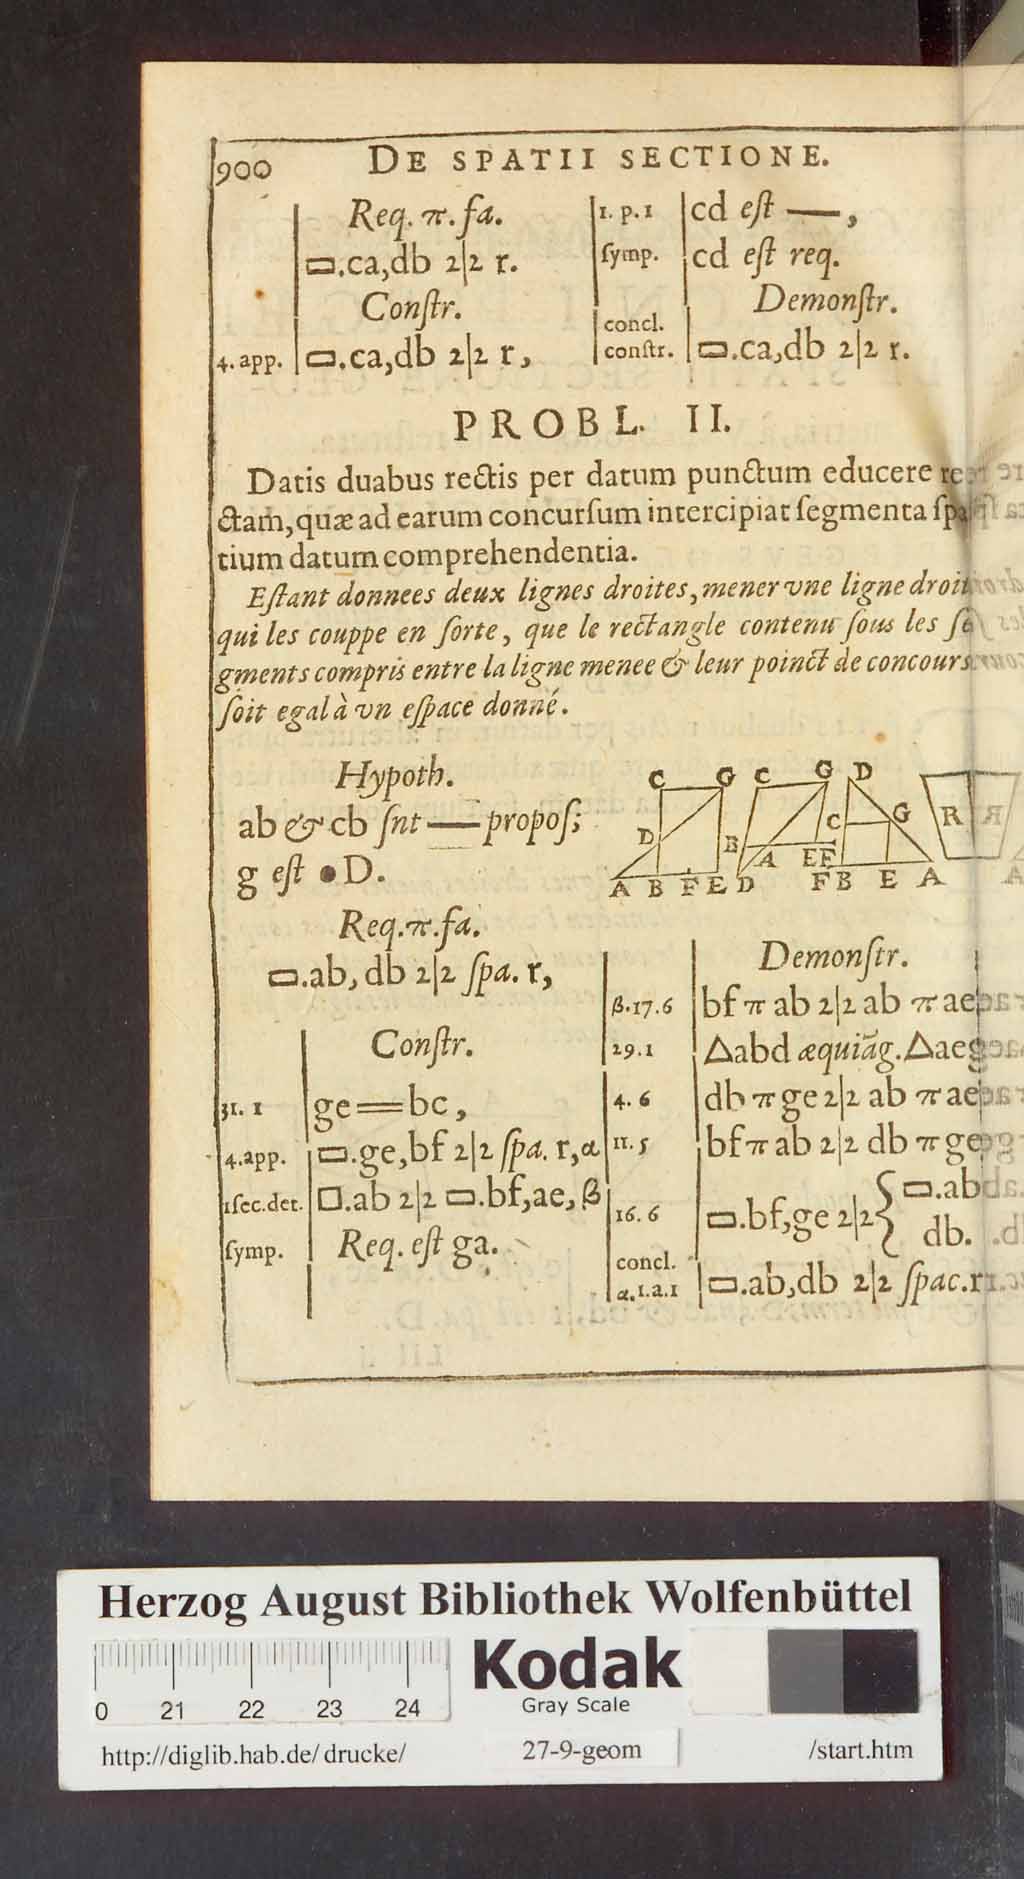 900 DE SPATII SECTIONE.
Req. π. fa.
▭.ca,db 2|2 r.
Constr.
4. app. ▭.ca,db 2|2 r,
1. p. 1 cd est —,
symp. cd est req.
Demonstr.
concl.
constr. ▭.ca,db 2|2 r.
PROBL. II.
Datis duabus rectis per datum punctum educere re
ctam, quæ ad earum concursum intercipiat segmenta spa
tium datum comprehendentia.
Estant donnees deux lignes droites, mener vne ligne droit
qui les couppe en sorte, que le rectangle contenu sous les se
gments compris entre la ligne menee & leur poinct de concours
soit egal à vn espace donné.
Hypoth.
ab & cb snt — propos;
g est •D.
Req. π. fa.
▭.ab, db 2|2 spa. r,
Constr.
31. 1 ge == bc,
4. app. ▭.ge,bf 2|2 spa. r, α
1 sec. det. □.ab 2|2 ▭.bf,ae, β
symp. Req. est ga.
C G C G D
D B C G R
A E F
A B F E D F B E A
Demonstr.
β. 17. 6 bf π ab 2|2 ab π ae
29. 1 △abd æquiāg. △aeg
4. 6 db π ge 2|2 ab π ae
11. 5 bf π ab 2|2 db π ge
16. 6 ▭.bf,ge 2|2 { ▭.ab
db.
concl.
α. 1. a. 1 ▭.ab,db 2|2 spac. r
Herzog August Bibliothek Wolfenbüttel
Kodak
Gray Scale
0 21 22 23 24
http://diglib.hab.de/drucke/ 27-9-geom /start.htm